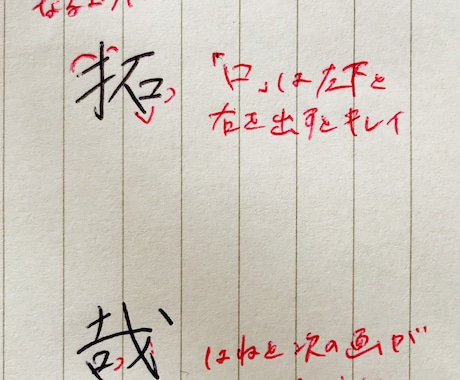 拓
「口」は左下と
右を出すとキレイ
哉
はねと次の画が